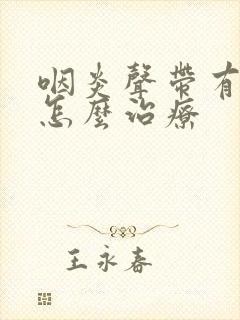 咽炎聲帶有
怎麼治療
王永春